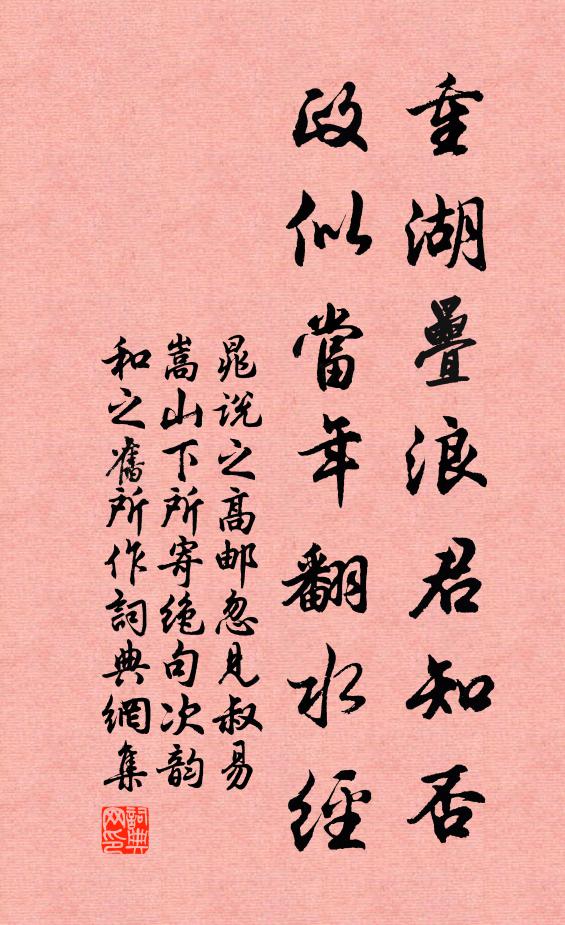 重湖疊浪君知否
政似當年翻水經
晁说之高邮忽見叔易
嵩山下所寄绝句次韵
和之舊所作詞典網集
詞典
网印